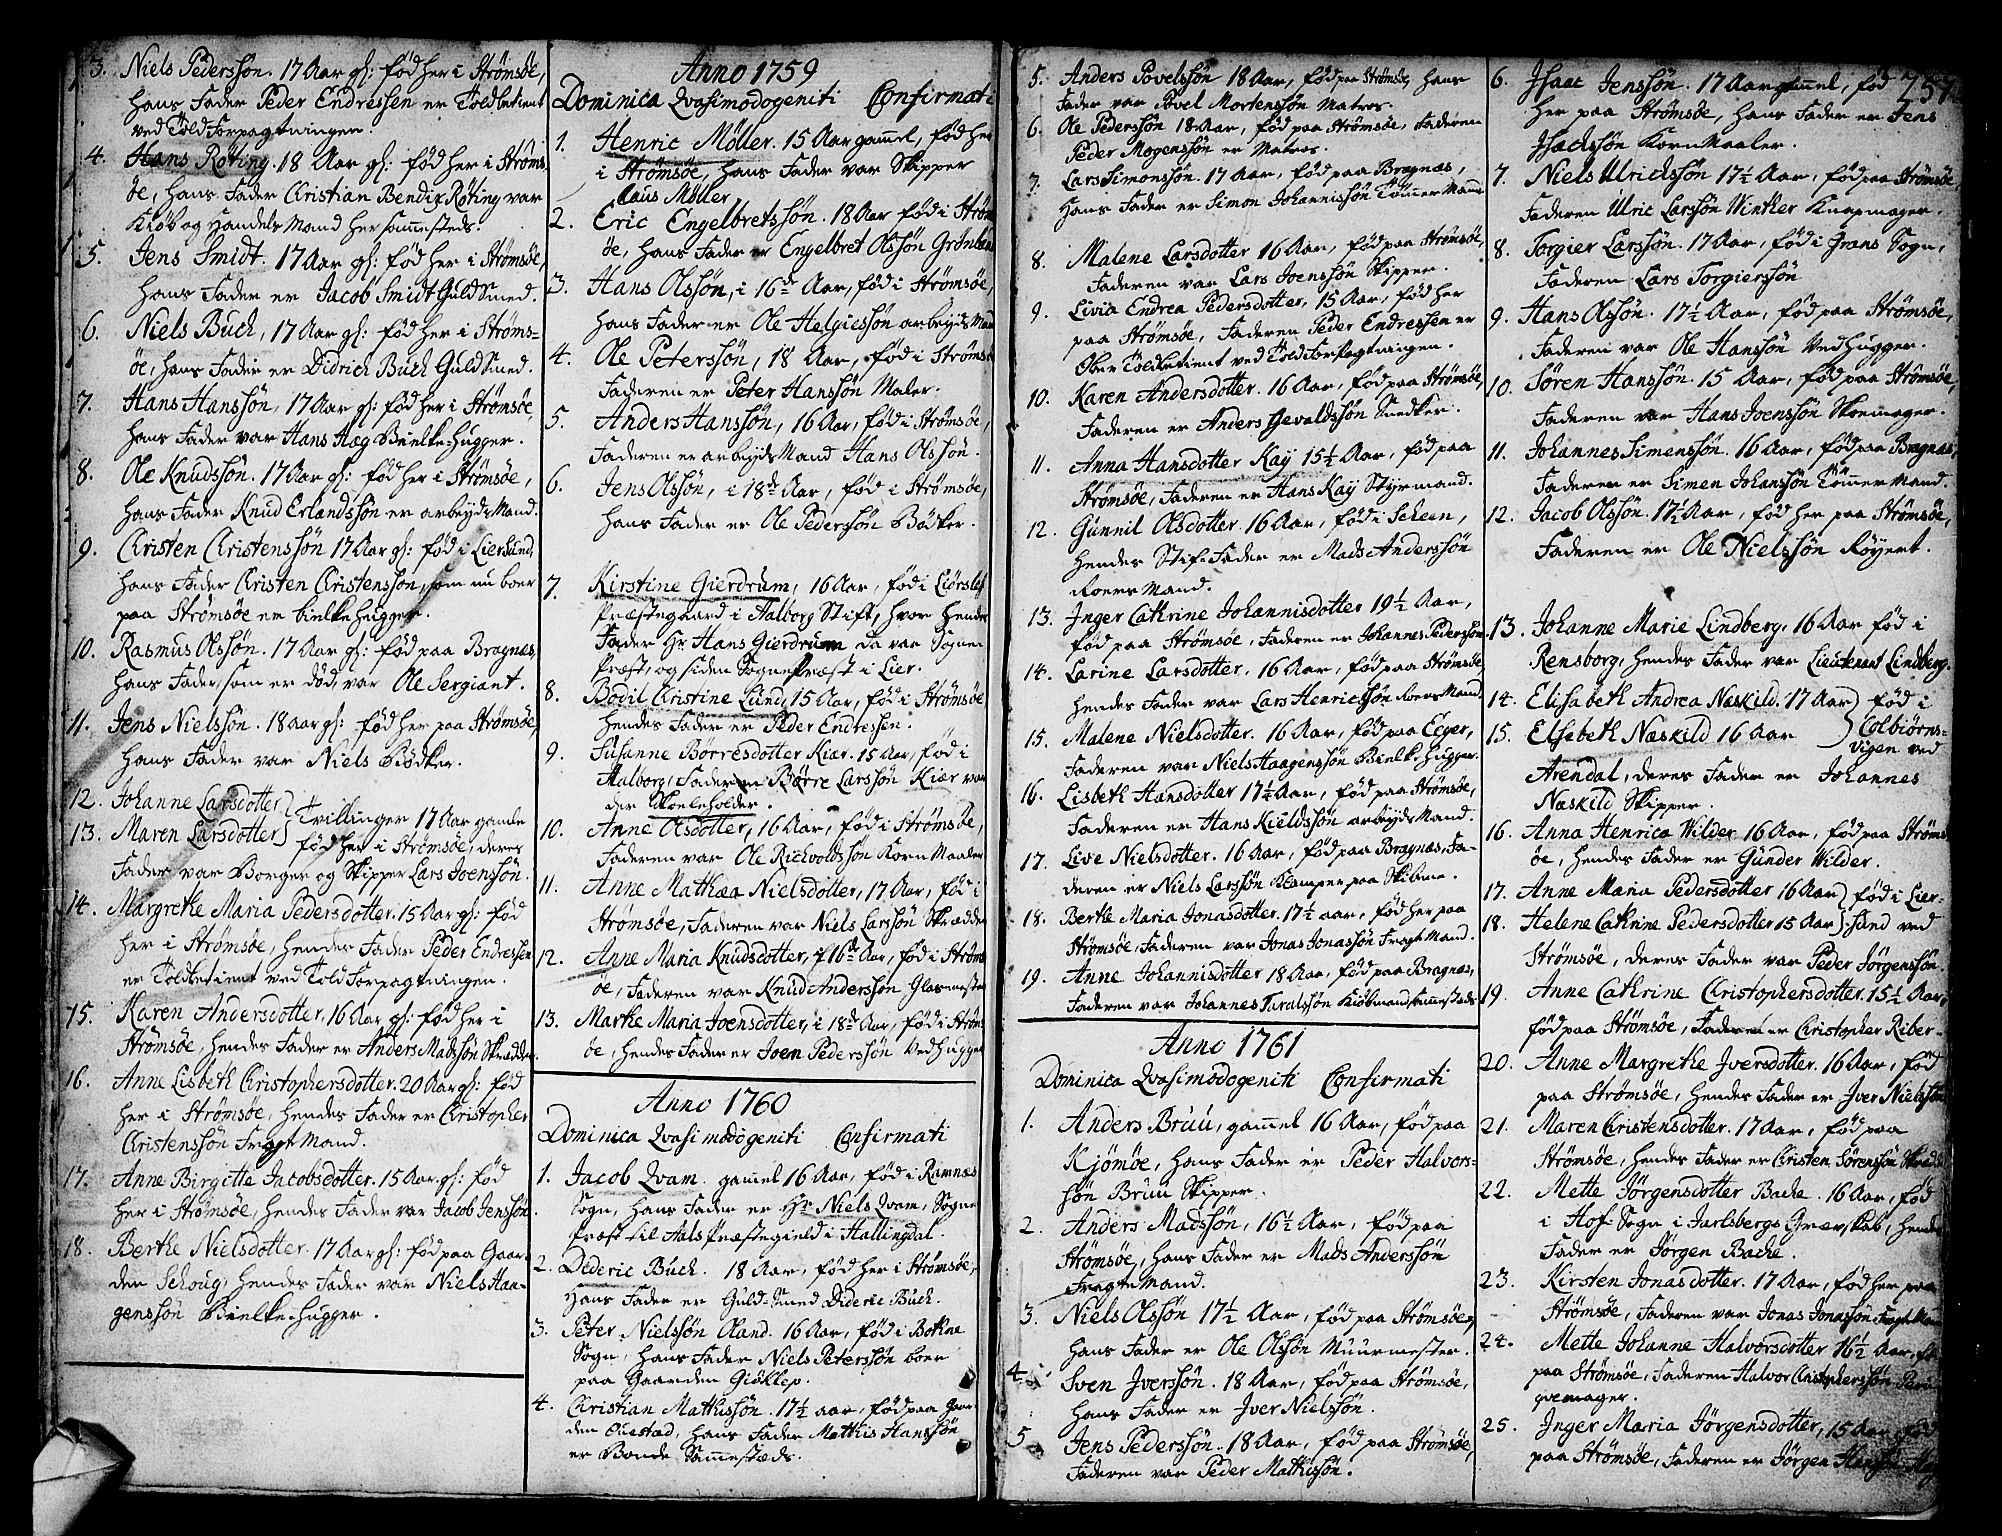 3. Niels Pederssön. 17 Aar gl: fød her i Strømsøe,
hans Fader Peder Endressen er Toldbetient
ved Told Forpagtningen.
4. Hans Röting. 18 Aar gl: fød her i Strøms-
öe, hans Fader Christian Bendix Röting var
Kiøb og Handels Mand her sammesteds.
5. Jens Smidt. 17 Aar gl: fød her i Strømsøe,
hans Fader er Jacob Smidt Guld Smed.
6. Niels Buch, 17 Aar gl: fød her i Strøms-
öe, hans Fader er Didrich Buch Guld Smed.
7. Hans Hanssön, 17 Aar gl: fød her i Strømsøe,
hans Fader var Hans Hæg Bielke-hugger.
8. Ole Knudssön. 17 Aar gl: fød her i Strømsøe,
hans Fader Knud Erlandssön er arbeyds Mand.
9. Christen Christenssön 17 Aar gl: fød i Liersund,
hans Fader Christen Christenssøn, som nu boer
paa Strømsøe er bielke hugger.
10. Rasmus Olssön. 17 Aar gl: fød paa Bragnæs,
hans Fader, som er död, var Ole Sergiant.
11. Jens Nielssön. 18 aar gl: fød her paa Strømsøe,
hans Fader var Niels Bødker.
12. Johanne Larsdotter } Tvillinger 17 Aar gamle
13. Maren Larsdotter } fød her i Strømsøe, deres
Fader var Borger og Skipper Lars Joenssön.
14. Margrethe Maria Pedersdotter. 15 Aar gl: fød
her i Strømsøe, hendes Fader Peder Endressen
er Toldbetient ved Told Forpagtningen.
15. Karen Andersdotter. 16 Aar gl: fød her i
Strømsøe, hendes Fader er Anders Madssön Skrædder.
16. Anne Lisbeth Christophersdotter. 20 Aar gl: fød
her i Strømsøe, hendes Fader er Christopher
Christenssön Fragt Mand.
17. Anne Birgitte Jacobsdotter. 15 Aar. gl: fød
her i Strømsøe, hendes Fader var Jacob Jenssön.
18. Berthe Nielsdotter. 17 Aar gl: fød paa Gaar-
den Schoug, hendes Fader var Niels Haa-
genssön Bielke-hugger.
Anno 1759
Dominica Qvasimodogeniti Confirmati
1. Henric Møller. 15 Aar gammel, fød her
i Strømsøe, hans Fader var Skipper
Claus Møller
2. Eric Engelbretssön. 18 Aar fød i Strøms
öe, hans Fader er Engelbret Olssön
3. Hans Olssön, i 16de Aar, fød i Strømsøe,
hans Fader er Ole Helgiessön arbeyds Mand
4. Ole Peterssön, 18 Aar, fød i Strømsøe
Faderen er Peter Hanssön Maler.
5. Anders Hanssön, 16 Aar, fød i Strømsøe,
Faderen er arbeyds Mand Hans Olssön.
6. Jens Olssön, i 18de Aar, fød i Strømsøe,
hans Fader er Ole Pederssön Bödker.
7. Kirstine Gierdrum, 16 Aar, fød i
Præstegaard i Aalborg Stift, hvor hendes
Fader Hr Hans Gierdrum da var Sogne
Præst, og siden Sogne Præst i Lier.
8. Bodil Christine Lund, 15 Aar, fød i Strømsøe
hendes Fader er Peder Endressen.
9. Susanne Börresdotter Kiær. 15 Aar, fød i
Aalborg, Faderen Børre Larssön Kiær var
der Skoeleholder.
10. Anne Olsdotter, 16 Aar, fød i Strømsøe,
Faderen var Ole Richvoldssön Korn Maaler
11. Anne Mathæa Nielsdotter, 17 Aar, fød i
Strømsøe, Faderen var Niels Larssön Skrædder
12. Anne Maria Knudsdotter, i 16de Aar, fød i Strøms
öe, Faderen var Knud Anderssön Glarmester
13. Marthe Maria Joensdotter, i 18de Aar, fød i Strøms
öe, hendes Fader er Joen Pederssön Vedhugger
Anno 1760
Dominica Qvasimodogeniti Confirmati
1. Jacob Qvam. gammel 16 Aar, fød i Ramnæs
Sogn, hans Fader er Hr Niels Qvam, Sogne
Præst til Aals Præstegield i Hallingdal.
2. Dideric Buch. 18 Aar, fød her i Strømsøe,
Hans Fader er Guld-Smed Dideric Buch.
3. Peter Nielssön Oland. 16 Aar, fød i Bothne
Sogn, hans Fader Niels Peterssön boer
paa Gaarden Gióklep.
4. Christian Mathissön. 17½ aar, fød paa Gaar
den Ouestad, hans Fader Mathis Hanssön
er Bonde Sammestæds.
5. Anders Povelssön 18 Aar, fød paa Strømsøe, hans
Fader var Povel Mortenssön Matros.
6. Ole Pederssön 18 Aar, fød paa Strømsøe, Faderen
Peder Mogenssön er Matros.
7. Lars Simonssön. 17 Aar, fød paa Bragnæs,
Hans Fader er Simon Johannissön Tömmer Mand
8. Malene Larsdotter 16 Aar, fød paa Strømsøe,
Faderen var Lars Joenssön Skipper.
9. Livia Endrea Pedersdotter, 15 Aar, fød her
paa Strømsøe, Faderen Peder Endressen er
Ober Toldbetient ved Told Forpagtningen.
10. Karen Andersdotter. 16 Aar, fød paa Strømsøe,
Faderen er Anders Gevaldssön Snedker.
11. Anna Hansdotter Kaÿ 15½ Aar, fød paa
Strømsøe, Faderen er Hans Kaÿ Styrmand.
12. Gunnil Olsdotter. 16 Aar, fød i Scheen,
hendes Stif-Fader er Mads Anderssön
Roers Mand.
13. Inger Cathrine Johannisdotter 19½ Aar,
fød paa Strømsøe, Faderen er Johannes Pederssön
14. Larine Larsdotter, 16 Aar, fød paa Strømsøe
hendes Fader var Lars Henricssön Roers Mand.
15. Malene Nielsdotter. 16 Aar, fød paa Eeger,
Faderen var Niels Haagenssön Bielke-hugger.
16. Lisbeth Hansdotter 17¼ Aar, fød paa Strømsøe,
Faderen er Hans Kieldssön arbeyds Mand.
17. Live Nielsdotter. 16 Aar, fød paa Bragnæs, Fa-
deren er Niels Larssön Klamper paa Skibene.
18. Berthe Maria Jonasdotter. 17½ aar, fød her paa
Strømsøe, Faderen var Jonas Jonassön Fragt Mand.
19. Anne Johannisdotter 18 Aar, fød paa Bragnæs,
Faderen var Johannes Taralssön Kiöbmand sammesteds
Anno 1761
Dominica Qvasimodogeniti Confirmati
1. Anders Bruu, gammel 16 Aar, fød paa
Kjömöe, hans Fader er Peder Halvors-
sön Bruu Skipper.
2. Anders Madssön, 16½ Aar, fød paa
Strømsøe, hans Fader er Mads Anderssön
Fragt Mand.
3. Niels Olssön 17½ Aar, fød paa Strømsøe,
hans Fader er Ole Olssön Muurmester.
4. Sven Jverssön. 18 Aar, fød paa Strømsøe,
hans Fader er Jver Nielssön.
5. Jens Pederssön. 18 Aar, fød paa Strømsøe,
Faderen var Peder Mathissön.
757
6. Jsaac Jenssön. 17 Aar gammel, fød
her paa Strømsøe, hans Fader er Jens
Jsachssön Korn Maaler.
7. Niels Ulrichssön 17½ Aar, fød paa Strømsøe
Faderen Ulric Larssön Winther Knapmager.
8. Torgier Larssön. 17 Aar, fød i Grans Sogn,
Faderen Lars Torgierssön
9. Hans Olssön. 17½ Aar, fød paa Strømsøe,
Faderen var Ole Hanssön Vedhugger.
10. Sören Hanssön. 15 Aar, fød paa Strømsøe,
Faderen var Hans Joenssön Skoemager.
11. Johannes Simenssön. 16 Aar, fød paa Bragnæs,
Faderen er Simen Johanssön Tömmer Mand.
12. Jacob Olssön. 17½ Aar, fød her paa Strømsøe,
Faderen er Ole Nielssön Röyert.
13. Johanne Marie Lindberg, 16 Aar fød i
Rensborg, hendes Fader var Lieutenant Lindberg.
14. Elisabeth Andrea Næskild. 17 Aar } fød i
15. Elsebeth Næskild 16 Aar } Colbiörns-
vigen ved
Arendal, deres Fader er Johannes
Næskild Skipper.
16. Anna Henrica Wilder 16 Aar, fød paa Strøms
öe, hendes Fader er Gunder Wilder.
17. Anne Maria Pedersdotter 16 Aar } fød i Lier-
18. Helene Cathrine Pedersdotter 15 Aar } Sund ved
Strømsøe, deres Fader var Peder Jörgenssön.
19. Anne Cathrine Christophersdotter. 15½ Aar,
fød paa Strømsøe, Faderen er Christopher Riber-
20. Anne Margrethe Jversdotter. 16 Aar, fød
paa Strømsøe, hendes Fader er Jver Nielssön
21. Maren Christensdotter. 17 Aar, fød paa
Strømsøe, hendes Fader er Christen Sörenssön
22. Mette Jörgensdotter Bache. 16 Aar, fød
i Hof-Sogn i Jarlsbergs Grævskab, hendes
Fader er Jörgen Bache.
23. Kirsten Jonasdotter. 17 Aar, fød her paa
Strømsøe, Faderen var Jonas Jonassön Fragt Mand
24. Mette Johanne Halvorsdotter 16½ Aar, fød
paa Strømsøe, Faderen Halvor Christopherssön Paru
qvemager.
25. Jnger Maria Jörgensdotter, 15 Aar, fød
paa Strømsøe, Faderen er Jörgen